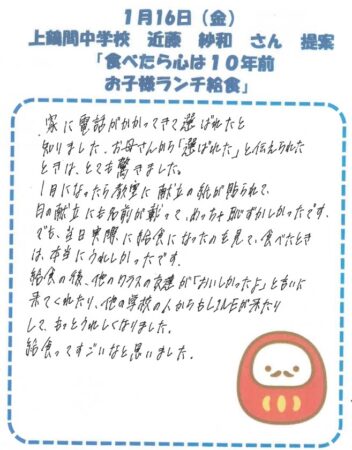 1月16日(金)
上鶴間中学校 近藤 紗和 さん 提案
「食べたら心は10年前
お子様ランチ給食」
家に電話がかかってきて選ばれたと
知りました。お母さんから「選ばれた」と伝えられた
ときは、とても驚きました。
1月になったら教室に献立の紙が貼られて、
日の献立に名前が載って、めっちゃ恥ずかしかったです。
でも、当日実際に給食になったのを見て、食べたとき
は、本当にうれしかったです。
給食の後、他のクラスの友達が「おいしかったよ」と言いに
来てくれたり、他の学校の人からもLINEが来たり
して、もっとうれしくなりました。
給食ってすごいなと思いました。